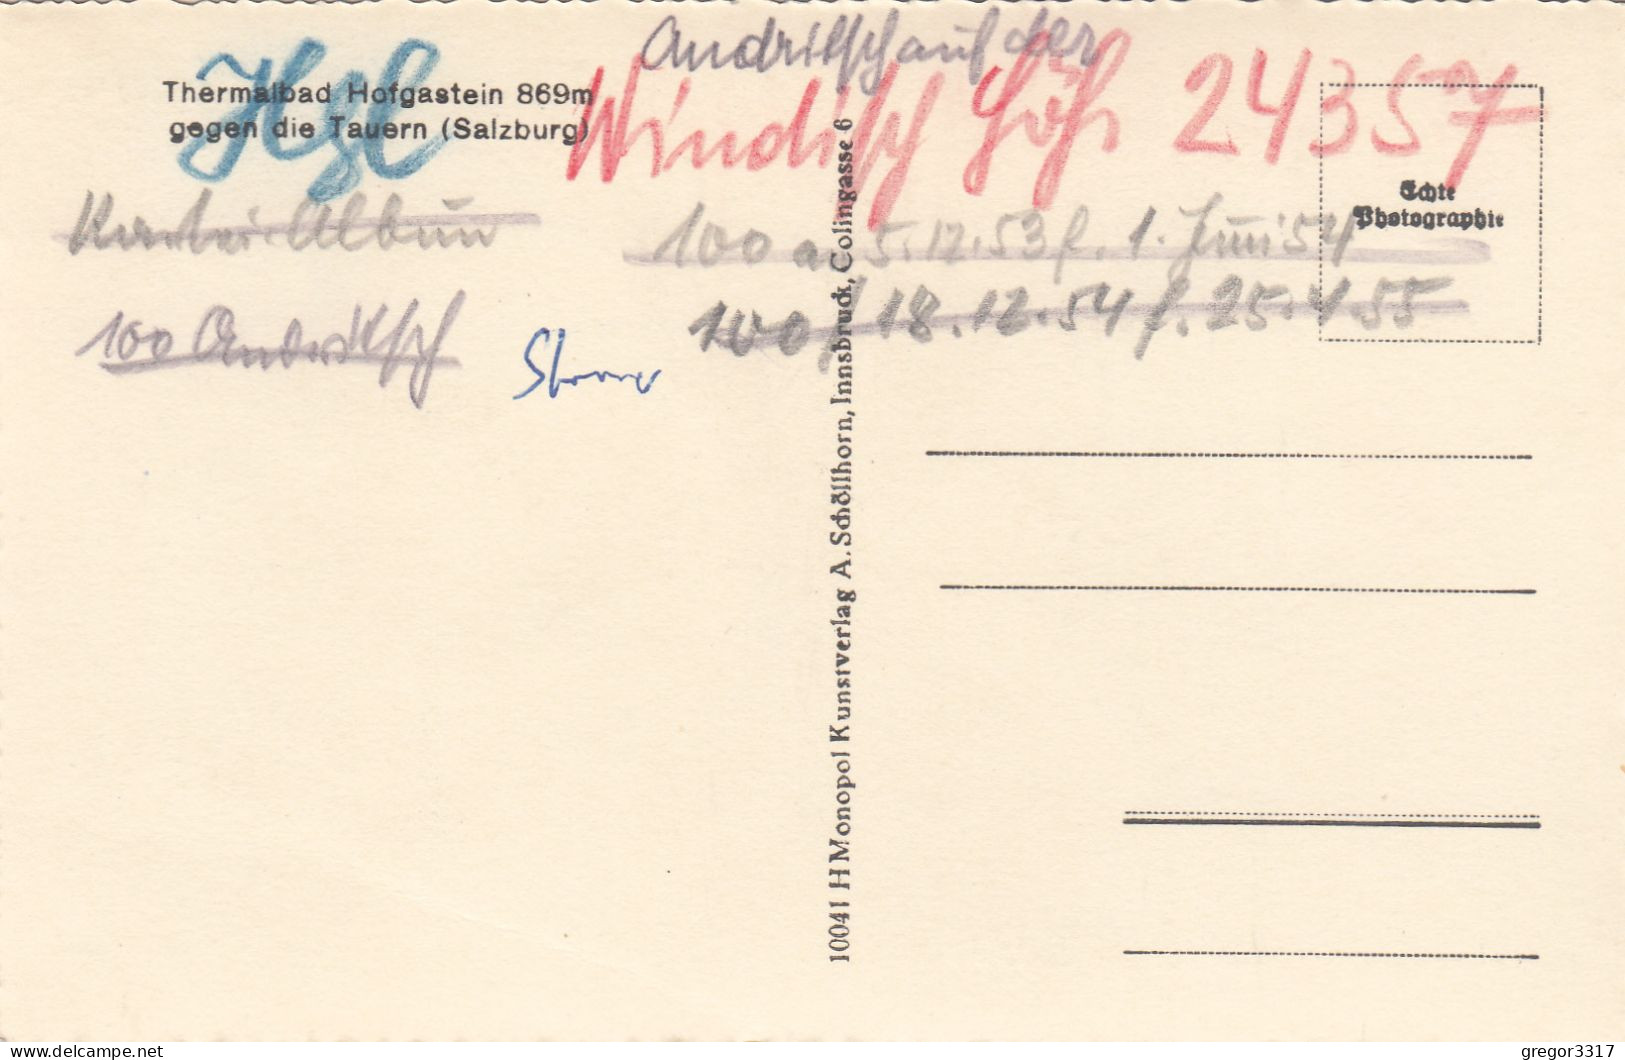 Andritsch auf der
Hgl
Windisch Höh 24357
Thermalbad Hofgastein 869m
gegen die Tauern (Salzburg)
Echte
Photographie
Kartei Album
100 a, 5.12.53 f. 1. Juni 54
100 Andritsch
100, 18.12.54 f. 25.4.55
10041 H Monopol Kunstverlag A. Schöllhorn, Innsbruck, Colingasse 6
gregor3317